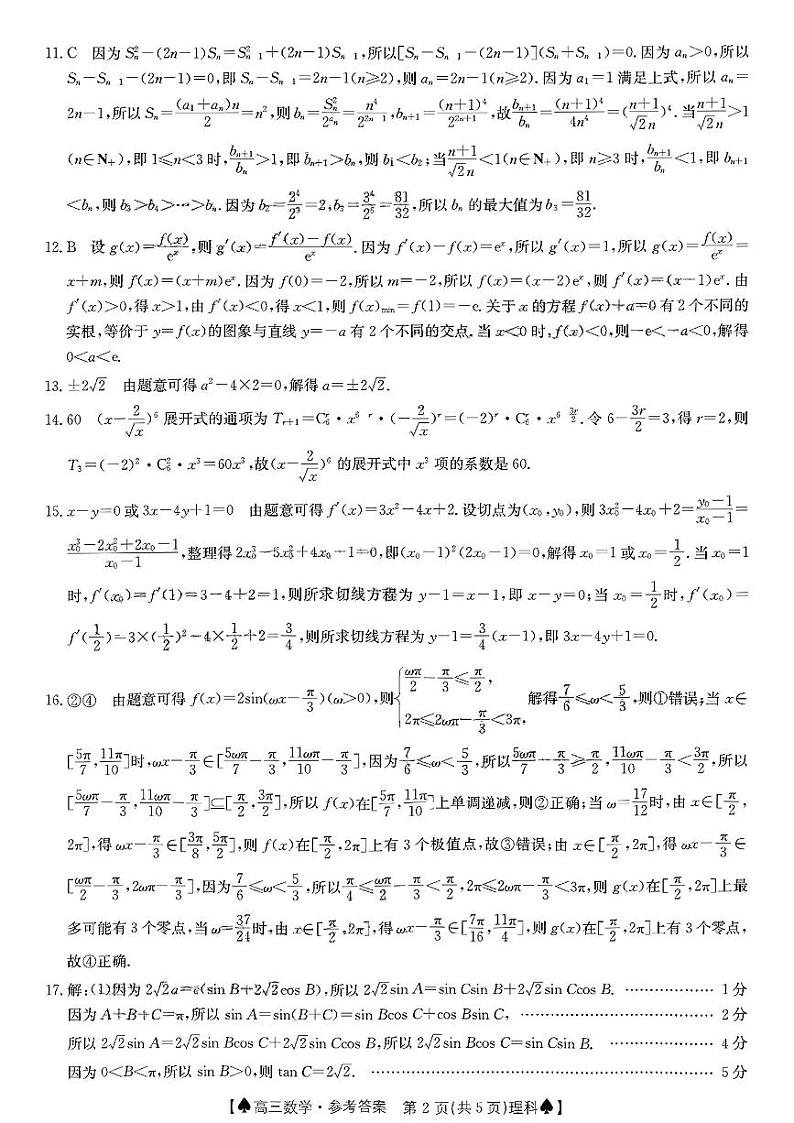 11. C 因为 S²ₙ−(2n−1)Sₙ=S²ₙ₋₁+(2n−1)Sₙ₋₁,所以[Sₙ−Sₙ₋₁−(2n−1)](Sₙ+Sₙ₋₁)=0.因为 aₙ>0,所以
Sₙ−Sₙ₋₁−(2n−1)=0,即 Sₙ−Sₙ₋₁=2n−1(n≥2),则 aₙ=2n−1(n≥2).因为 a₁=1 满足上式,所以 aₙ=
2n−1,所以 Sₙ=(a₁+aₙ)n/2=n²,则 bₙ=S²ₙ/2^(aₙ)=n⁴/2^(2n−1),bₙ₊₁=(n+1)⁴/2^(2n+1),故 bₙ₊₁/bₙ=(n+1)⁴/4n⁴=((n+1)/√2n)⁴.当 (n+1)/√2n>1
(n∈N₊),即 1≤n<3 时,bₙ₊₁/bₙ>1,即 bₙ₊₁>bₙ,则 b₁<b₂;当 (n+1)/√2n<1(n∈N₊),即 n≥3 时,bₙ₊₁/bₙ<1,即 bₙ₊₁
<bₙ,则 b₃>b₄>…>bₙ.因为 b₂=2⁴/2³=2,b₃=3⁴/2⁵=81/32,所以 bₙ 的最大值为 b₃=81/32.
12. B 设 g(x)=f(x)/eˣ,则 g′(x)=(f′(x)−f(x))/eˣ.因为 f′(x)−f(x)=eˣ,所以 g′(x)=1,所以 g(x)=f(x)/eˣ=
x+m,则 f(x)=(x+m)eˣ.因为 f(0)=−2,所以 m=−2,所以 f(x)=(x−2)eˣ,则 f′(x)=(x−1)eˣ.由
f′(x)>0,得 x>1,由 f′(x)<0,得 x<1,则 f(x)min=f(1)=−e.关于 x 的方程 f(x)+a=0 有 2 个不同的
实根,等价于 y=f(x)的图象与直线 y=−a 有 2 个不同的交点.当 x<0 时,f(x)<0,则−e<−a<0,解得
0<a<e.
13. ±2√2 由题意可得 a²−4×2=0,解得 a=±2√2.
14. 60 (x−2/√x)⁶ 展开式的通项为 Tᵣ₊₁=C₆ʳ·x⁶⁻ʳ·(−2/√x)ʳ=(−2)ʳ·C₆ʳ·x^(6−3r/2).令 6−3r/2=3,得 r=2,则
T₃=(−2)²·C₆²·x³=60x³,故(x−2/√x)⁶ 的展开式中 x³ 项的系数是 60.
15. x−y=0 或 3x−4y+1=0 由题意可得 f′(x)=3x²−4x+2.设切点为(x₀,y₀),则 3x₀²−4x₀+2=(y₀−1)/(x₀−1)=
(x₀³−2x₀²+2x₀−1)/(x₀−1),整理得 2x₀³−5x₀²+4x₀−1=0,即(x₀−1)²(2x₀−1)=0,解得 x₀=1 或 x₀=1/2.当 x₀=1
时,f′(x₀)=f′(1)=3−4+2=1,则所求切线方程为 y−1=x−1,即 x−y=0;当 x₀=1/2时,f′(x₀)=
f′(1/2)=3×(1/2)²−4×1/2+2=3/4,则所求切线方程为 y−1=3/4(x−1),即 3x−4y+1=0.
16. ②④ 由题意可得 f(x)=2sin(ωx−π/3)(ω>0),则{ωπ/2−π/3≤π/2, 2π≤2ωπ−π/3<3π, 解得7/6≤ω<5/3,则①错误;当 x∈
[5π/7,11π/10]时,ωx−π/3∈[5ωπ/7−π/3,11ωπ/10−π/3],因为7/6≤ω<5/3,所以5ωπ/7−π/3≥π/2,11ωπ/10−π/3<3π/2,所以
[5ωπ/7−π/3,11ωπ/10−π/3]⊆[π/2,3π/2],所以 f(x)在[5π/7,11π/10]上单调递减,则②正确;当 ω=17/12时,由 x∈[π/2,
2π],得 ωx−π/3∈[3π/8,5π/2],则 f(x)在[π/2,2π]上有 3 个极值点,故③错误;由 x∈[π/2,2π],得 ωx−π/3∈
[ωπ/2−π/3,2ωπ−π/3],因为7/6≤ω<5/3,所以π/4≤ωπ/2−π/3<π/2,2π≤2ωπ−π/3<3π,则 g(x)在[π/2,2π]上最
多可能有 3 个零点,当 ω=37/24时,由 x∈[π/2,2π],得ωx−π/3∈[7π/16,11π/4],则 g(x)在[π/2,2π]上有 3 个零点,
故④正确.
17. 解:(1)因为 2√2a=c(sin B+2√2cos B),所以 2√2sin A=sin Csin B+2√2sin Ccos B. ………………… 1 分
因为 A+B+C=π,所以 sin A=sin(B+C)=sin Bcos C+cos Bsin C, ………………… 2 分
所以 2√2sin A=2√2sin Bcos C+2√2sin Ccos B,所以 2√2sin Bcos C=sin Csin B. ………………… 4 分
因为 0<B<π,所以 sin B>0,则 tan C=2√2. ………………… 5 分
【♠高三数学·参考答案 第 2 页(共 5 页)理科♠】